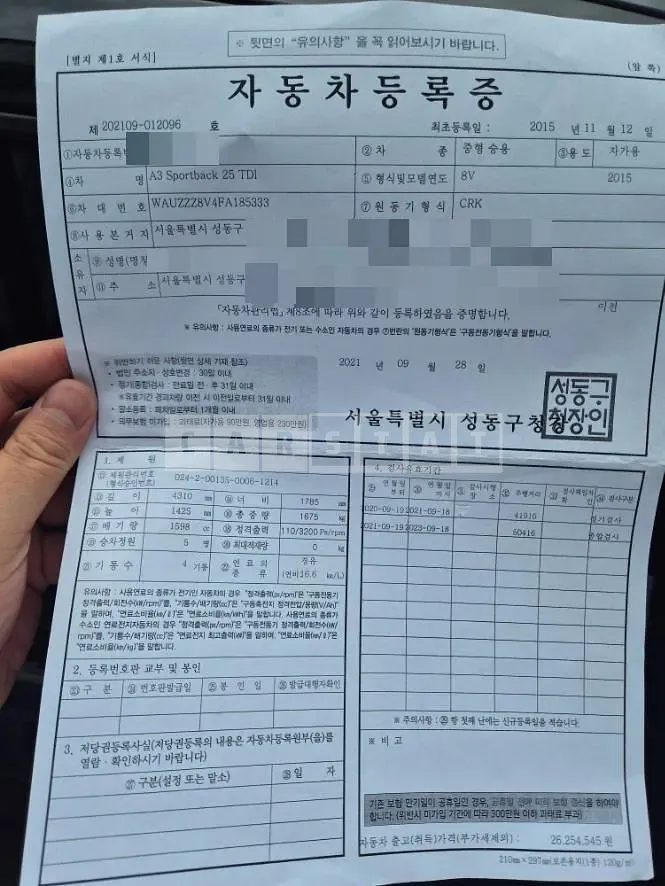 ※ 뒷면의 "유의사항"을 꼭 읽어보시기 바랍니다.
[별지 제1호 서식]
(앞 쪽)
자동차등록증
제 202109-012096 호
최초등록일 : 2015 년 11 월 12 일
①자동차등록번
②차 종 중형 승용 ③용도 자가용
④차 명 A3 Sportback 25 TDI ⑤형식및모델연도 8V 2015
⑥차대번호 WAUZZZ8V4FA185333 ⑦원동기형식 CRK
⑧사용본거지 서울특별시 성동구
소유자 ⑨성명(명칭
주 소 서울특별시 성동구
이전
「자동차관리법」제8조에 따라 위와 같이 등록하였음을 증명합니다.
※ 유의사항 : 사용연료의 종류가 전기 또는 수소인 자동차의 경우 ⑦번란의 '원동기형식'은 '구동전동기형식'을 말합니다.
2021 년 09 월 28 일
※ 위반하기 쉬운 사항(뒷면 상세 기재 참조)
• 법인 주소지·상호변경 : 30일 이내
• 정기(종합)검사 : 만료일 전·후 31일 이내
※유효기간 경과차량 이전 시 이전일로부터 31일 이내
• 말소등록 : 폐차일로부터 1개월 이내
• 의무보험 미가입 : 과태료(자가용 90만원, 영업용 230만원)
서울특별시 성동구청장
성동구
청장인
CARSTAT
1. 제 원
⑪제원관리번호
(형식승인번호) 024-2-00135-0006-1214
⑬길 이 4310 mm ⑭너 비 1785 mm
⑮높 이 1425 mm ⑯총중량 1675 kg
⑰배기량 1598 cc ⑱정격출력 110/3200 Ps/rpm
⑲승차정원 5 명 ⑳최대적재량 0 kg
기통수 4 기통 연료의 종류 경유 (연비16.6 km/L)
유의사항 : 사용연료의 종류가 전기인 자동차의 경우 "정격출력(ps/rpm)"은 "구동전동기
정격출력/회전수(kW/rpm)"를, "기통수/배기량(cc)"은 "구동축전지 정격전압/용량(V/Ah)"
을 말하며, "연료소비율(km/ℓ)"은 "연료소비율(km/kWh)"을 말합니다. 사용연료의 종류가
수소인 연료전지자동차의 경우 "정격출력(ps/rpm)"은 "구동전동기 정격출력/회전수(kW/
rpm)"를, "기통수/배기량(cc)"은 "연료전지 최고출력(kW)"을 말하며, "연료소비율(km/ℓ)"은
"연료소비율(km/kg)"을 말합니다.
2. 등록번호판 교부 및 봉인
구 분 번호판발급일 봉 인 일 발급대행자확인
3. 저당권등록사실(저당권등록의 내용은 자동차등록원부(을)를
열람·확인하시기 바랍니다)
구분(설정 또는 말소) 일 자
4. 검사유효기간
연월일 부터 연월일 까지 검사시행 장소 주행거리 검사책임자 확인 검사구분
2020-09-19 2021-09-18 41916 정기검사
2021-09-19 2023-09-18 60416 종합검사
※ 주의사항 : 항 첫째 난에는 신규등록일을 적습니다.
※ 비 고
기존 보험 만기일이 공휴일인 경우, 공휴일 전에 미리 보험 갱신을 하여야
합니다.(위반시 미가입 기간에 따라 300만원 이하 과태료 부과)
자동차 출고(취득)가격(부가세제외) : 26,254,545 원
210mm×297mm(보존용지(1종) 120g/㎡)